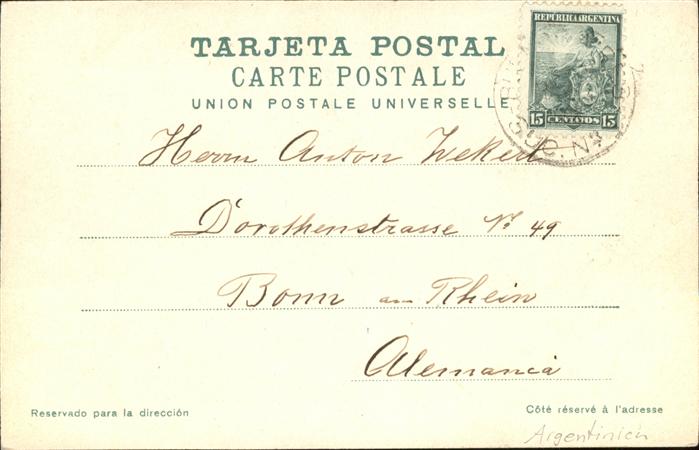 TARJETA POSTAL
CARTE POSTALE
UNION POSTALE UNIVERSELLE
REPÚBLICA ARGENTINA
15 CENTAVOS 15
SUC. Nº
Herrn Anton Wekerl
Dorothenstrasse Nº 49
Bonn am Rhein
Alemania
Reservado para la dirección
Côté réservé à l'adresse
Argentinien